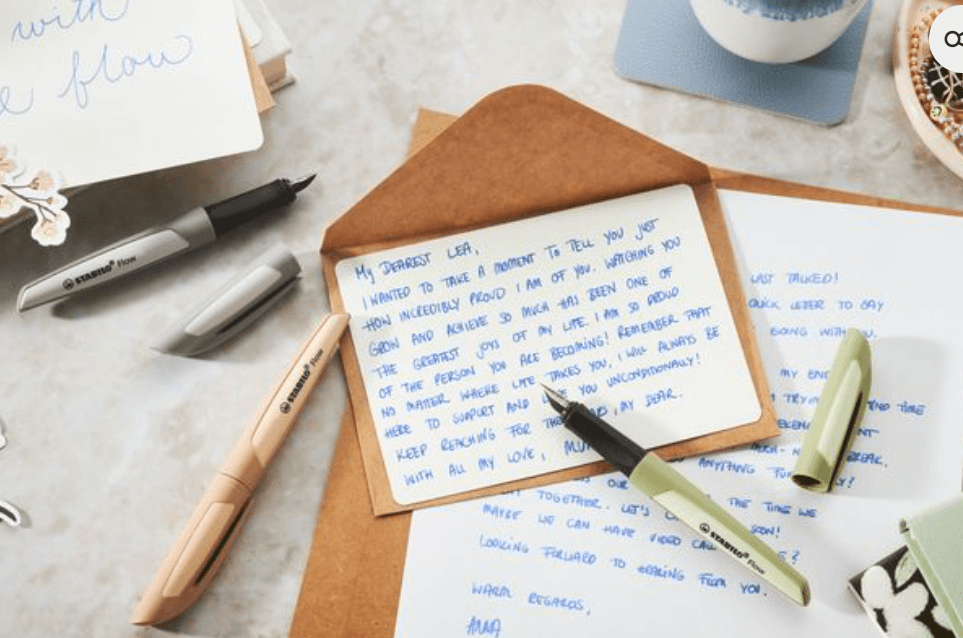 with
flow
STABILO® Flow
STABILO® Flow
MY DEAREST LEA,
I WANTED TO TAKE A MOMENT TO TELL YOU JUST
HOW INCREDIBLY PROUD I AM OF YOU. WATCHING YOU
GROW AND ACHIEVE SO MUCH HAS BEEN ONE OF
THE GREATEST JOYS OF MY LIFE. I AM SO PROUD
OF THE PERSON YOU ARE BECOMING! REMEMBER THAT
NO MATTER WHERE LIFE TAKES YOU, I WILL ALWAYS BE
HERE TO SUPPORT AND YOU UNCONDITIONALLY!
KEEP REACHING FOR , MY DEAR.
WITH ALL MY LOVE,
LAST TALKED!
QUICK LETTER TO SAY
GOING WITH YOU.
MY
AND TIME
ANYTHING
OUR
TOGETHER. LET'S THE TIME WE
MAYBE WE CAN HAVE VIDEO SOON!
LOOKING FORWARD TO HEARING FROM YOU.
WARM REGARDS,
ANNA
STABILO® Flow